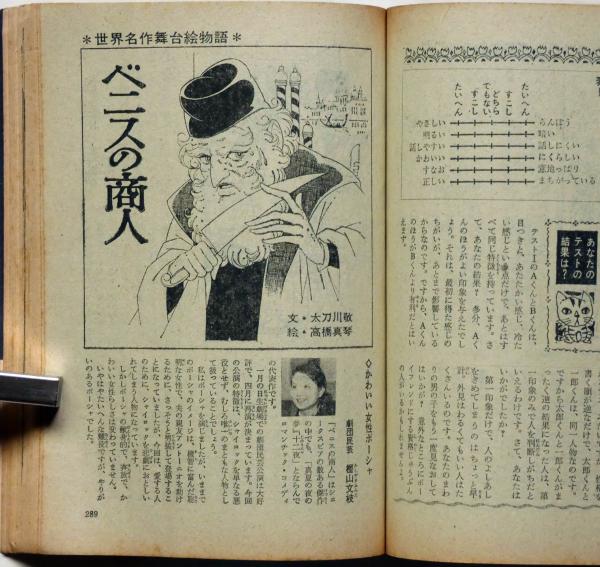 ＊世界名作舞台絵物語＊
ベニスの商人
文・太刀川敬
絵・高橋真琴
◇かわいい女性ポーシャ
劇団民芸 樫山文枝
「ベニスの商人」はシェ
ークスピアの数ある傑作
の中でも、「真夏の夜の
夢」「十二夜」とならんで
ロマンチック・コメディ
の代表作です。
一月の日生劇場での劇団民芸公演は大好
評で、四月に再演が決まっています。今回
の公演の特徴は、シャイロックを単なる悪
役とせず、心のあたたかさをもった人物とし
て扱っていることでしょう。
私はポーシャを演じましたが、いままで
のポーシャのイメージは、機智に富んだ聡
明な女性で、夫の親友アントーニオを助け
るために、さっそうと男装して登場するこ
とになっていましたが、今回は、愛する人
のために、シャイロックを悲劇におとしい
れてしまう人物になっています。
しかしポーシャの魅惑的で、奔放で、か
わいい女性らしさは変わっていません。
いやはやたいへんな難役ですが、やりが
いのあるポーシャでした。
289
たいへん
すこし
どちら
でもない
すこし
たいへん
やさしい
らんぼう
明るい
暗い
話しやすい
話しにくい
かわいい
にくらしい
すなお
意地っぱり
正しい
まちがっている
あなたの
テストの
結果は？
テストⅠのAくんとBくんは、
目つきと、あたたかい感じ、冷た
い感じという点だけで、あとはす
べて同じ特徴を持っています。さ
て、あなたの結果？ 多分、Aく
んのほうがよい印象を与えたでし
ょう。それは、最初に得た感じの
ちがいが、あとまで影響している
からなのです。ですから、Aくん
のほうがBくんより有利だとはい
えます。
書く順が逆なだけで、太郎くんと
一郎くんは、同一人物なのです。
ですから太郎くんと一郎くんがま
ったく逆の結果になった人は、第
一印象のみで人を判断しがちだと
いえるわけです。さて、あなたは
いかがでしたか？
第一印象だけで、人のよしあし